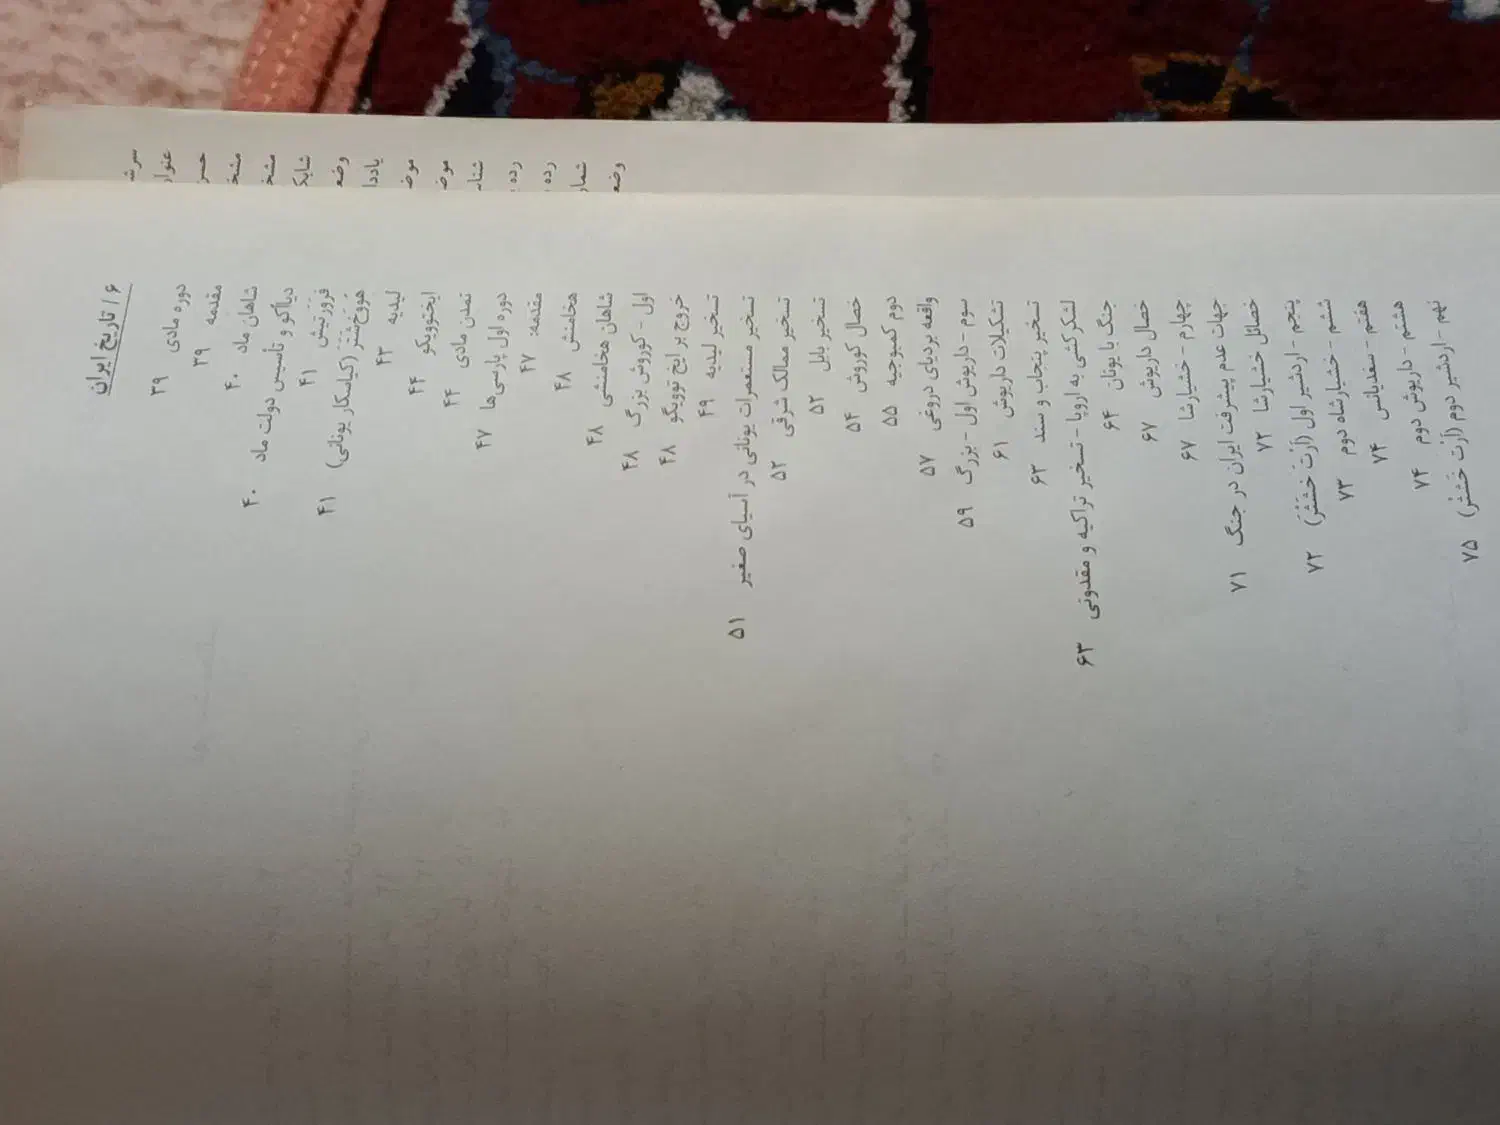 ۶ / تاریخ ایران
دوره مادی ۳۹
مقدمه ۳۹
شاهان ماد ۴۰
دیاآکو و تأسیس دولت ماد ۴۰
فرورتیش ۴۱
هووخ‌شتر (کیاکسار یونانی) ۴۱
لیدیه ۴۳
ایختوویگو ۴۴
تمدن مادی ۴۴
دوره اول پارسی‌ها ۴۷
مقدمه: ۴۷
هخامنش ۴۸
شاهان هخامنشی ۴۸
اول - کوروش بزرگ ۴۸
خروج بر ایخ توویگو ۴۸
تسخیر لیدیه ۴۹
تسخیر مستعمرات یونانی در آسیای صغیر ۵۱
تسخیر ممالک شرقی ۵۲
تسخیر بابل ۵۲
خصال کوروش ۵۴
دوم کمبوجیه ۵۵
واقعه بردیای دروغی ۵۷
سوم - داریوش اول - بزرگ ۵۹
تشکیلات داریوش ۶۱
تسخیر پنجاب و سند ۶۳
لشکرکشی به اروپا - تسخیر تراکیه و مقدونی ۶۳
جنگ با یونان ۶۴
خصال داریوش ۶۷
چهارم - خشیارشا ۶۷
جهات عدم پیشرفت ایران در جنگ ۷۱
خصائل خشیارشا ۷۲
پنجم - اردشیر اول (اَرْتَ خْشَثْرَ) ۷۲
ششم - خشیارشاه دوم ۷۳
هفتم - سغدیانس ۷۴
هشتم - داریوش دوم ۷۴
نهم - اردشیر دوم (اَرْتَ خْشَثْرَ) ۷۵
سرش
عنوان
مشخ
مشخ
شابک
وضع
یاددا
موض
موض
شنا
رده
رده
شمار
وضع